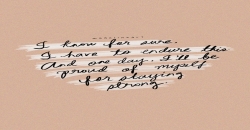 I know for sure.
I have to endure this
And one day. I'll be
proud of myself
for staying
strong.